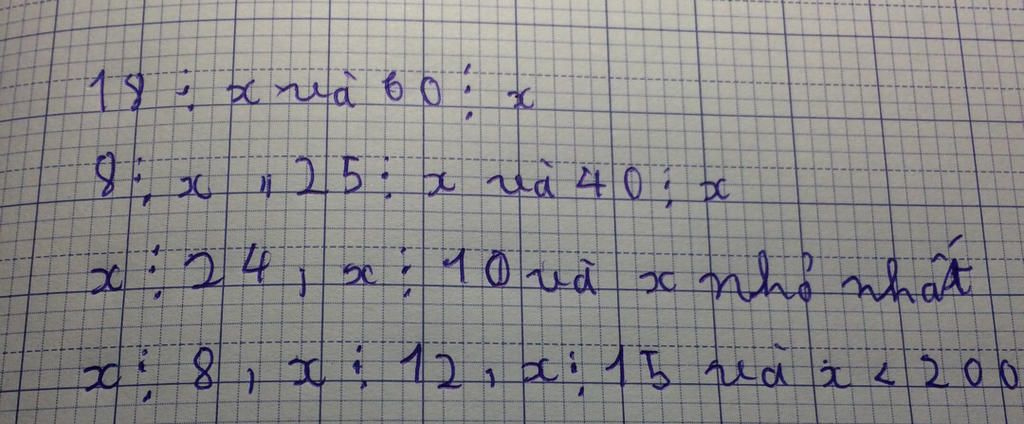 18 ⋮ x và 60 ⋮ x
8 ⋮ x , 25 ⋮ x và 40 ⋮ x
x ⋮ 24 , x ⋮ 10 và x nhỏ nhất
x ⋮ 8 , x ⋮ 12 , x ⋮ 15 và x < 200